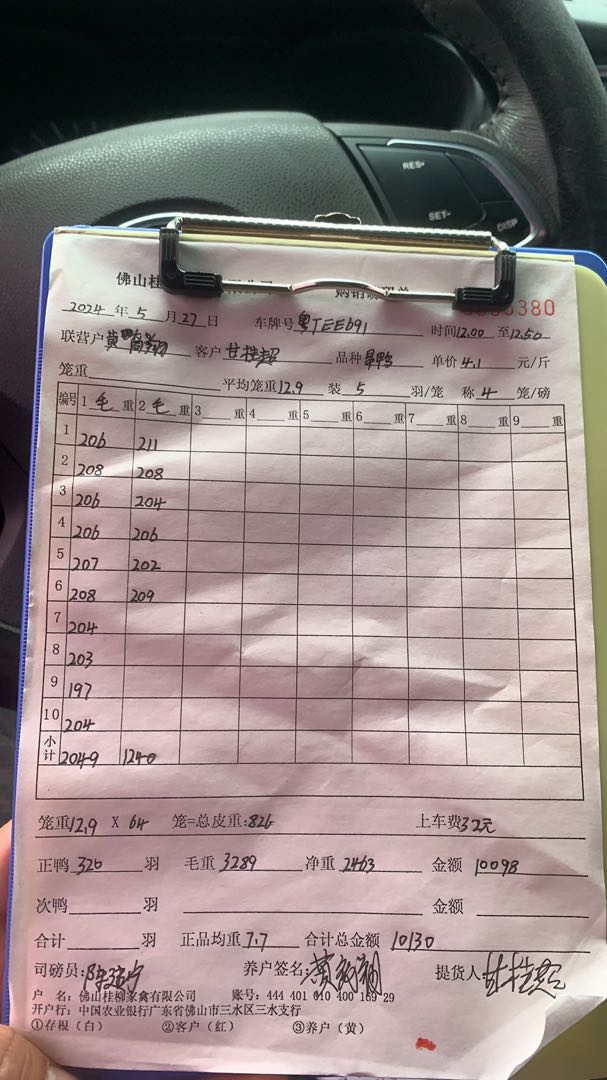 RES+
SET-
DISP
佛山桂
6380
2024 年 5 月 27 日 车牌号 粤TEE691 时间12.00 至12.50
联营户 客户 甘桂超 品种 单价 4.1 元/斤
笼重 平均笼重12.9 装 5 羽/笼 称 4 笼/磅
编号 1 毛 重 2 毛 重 3 重 4 重 5 重 6 重 7 重 8 重 9 重
1 206 211
2 208 208
3 206 204
4 206 206
5 207 202
6 208 209
7 204
8 203
9 197
10 204
小计 2049 1240
笼重12.9 X 64 笼=总皮重:826 上车费32元
正鸭 320 羽 毛重 3289 净重 2463 金额 10098
次鸭 羽 金额
合计 羽 正品均重 7.7 合计总金额 10130
司磅员: 养户签名: 提货人:
户 名: 佛山桂柳家禽有限公司 账号: 444 401 010 400 169 29
开户行: 中国农业银行广东省佛山市三水区三水支行
①存根（白） ②客户（红） ③养户（黄）